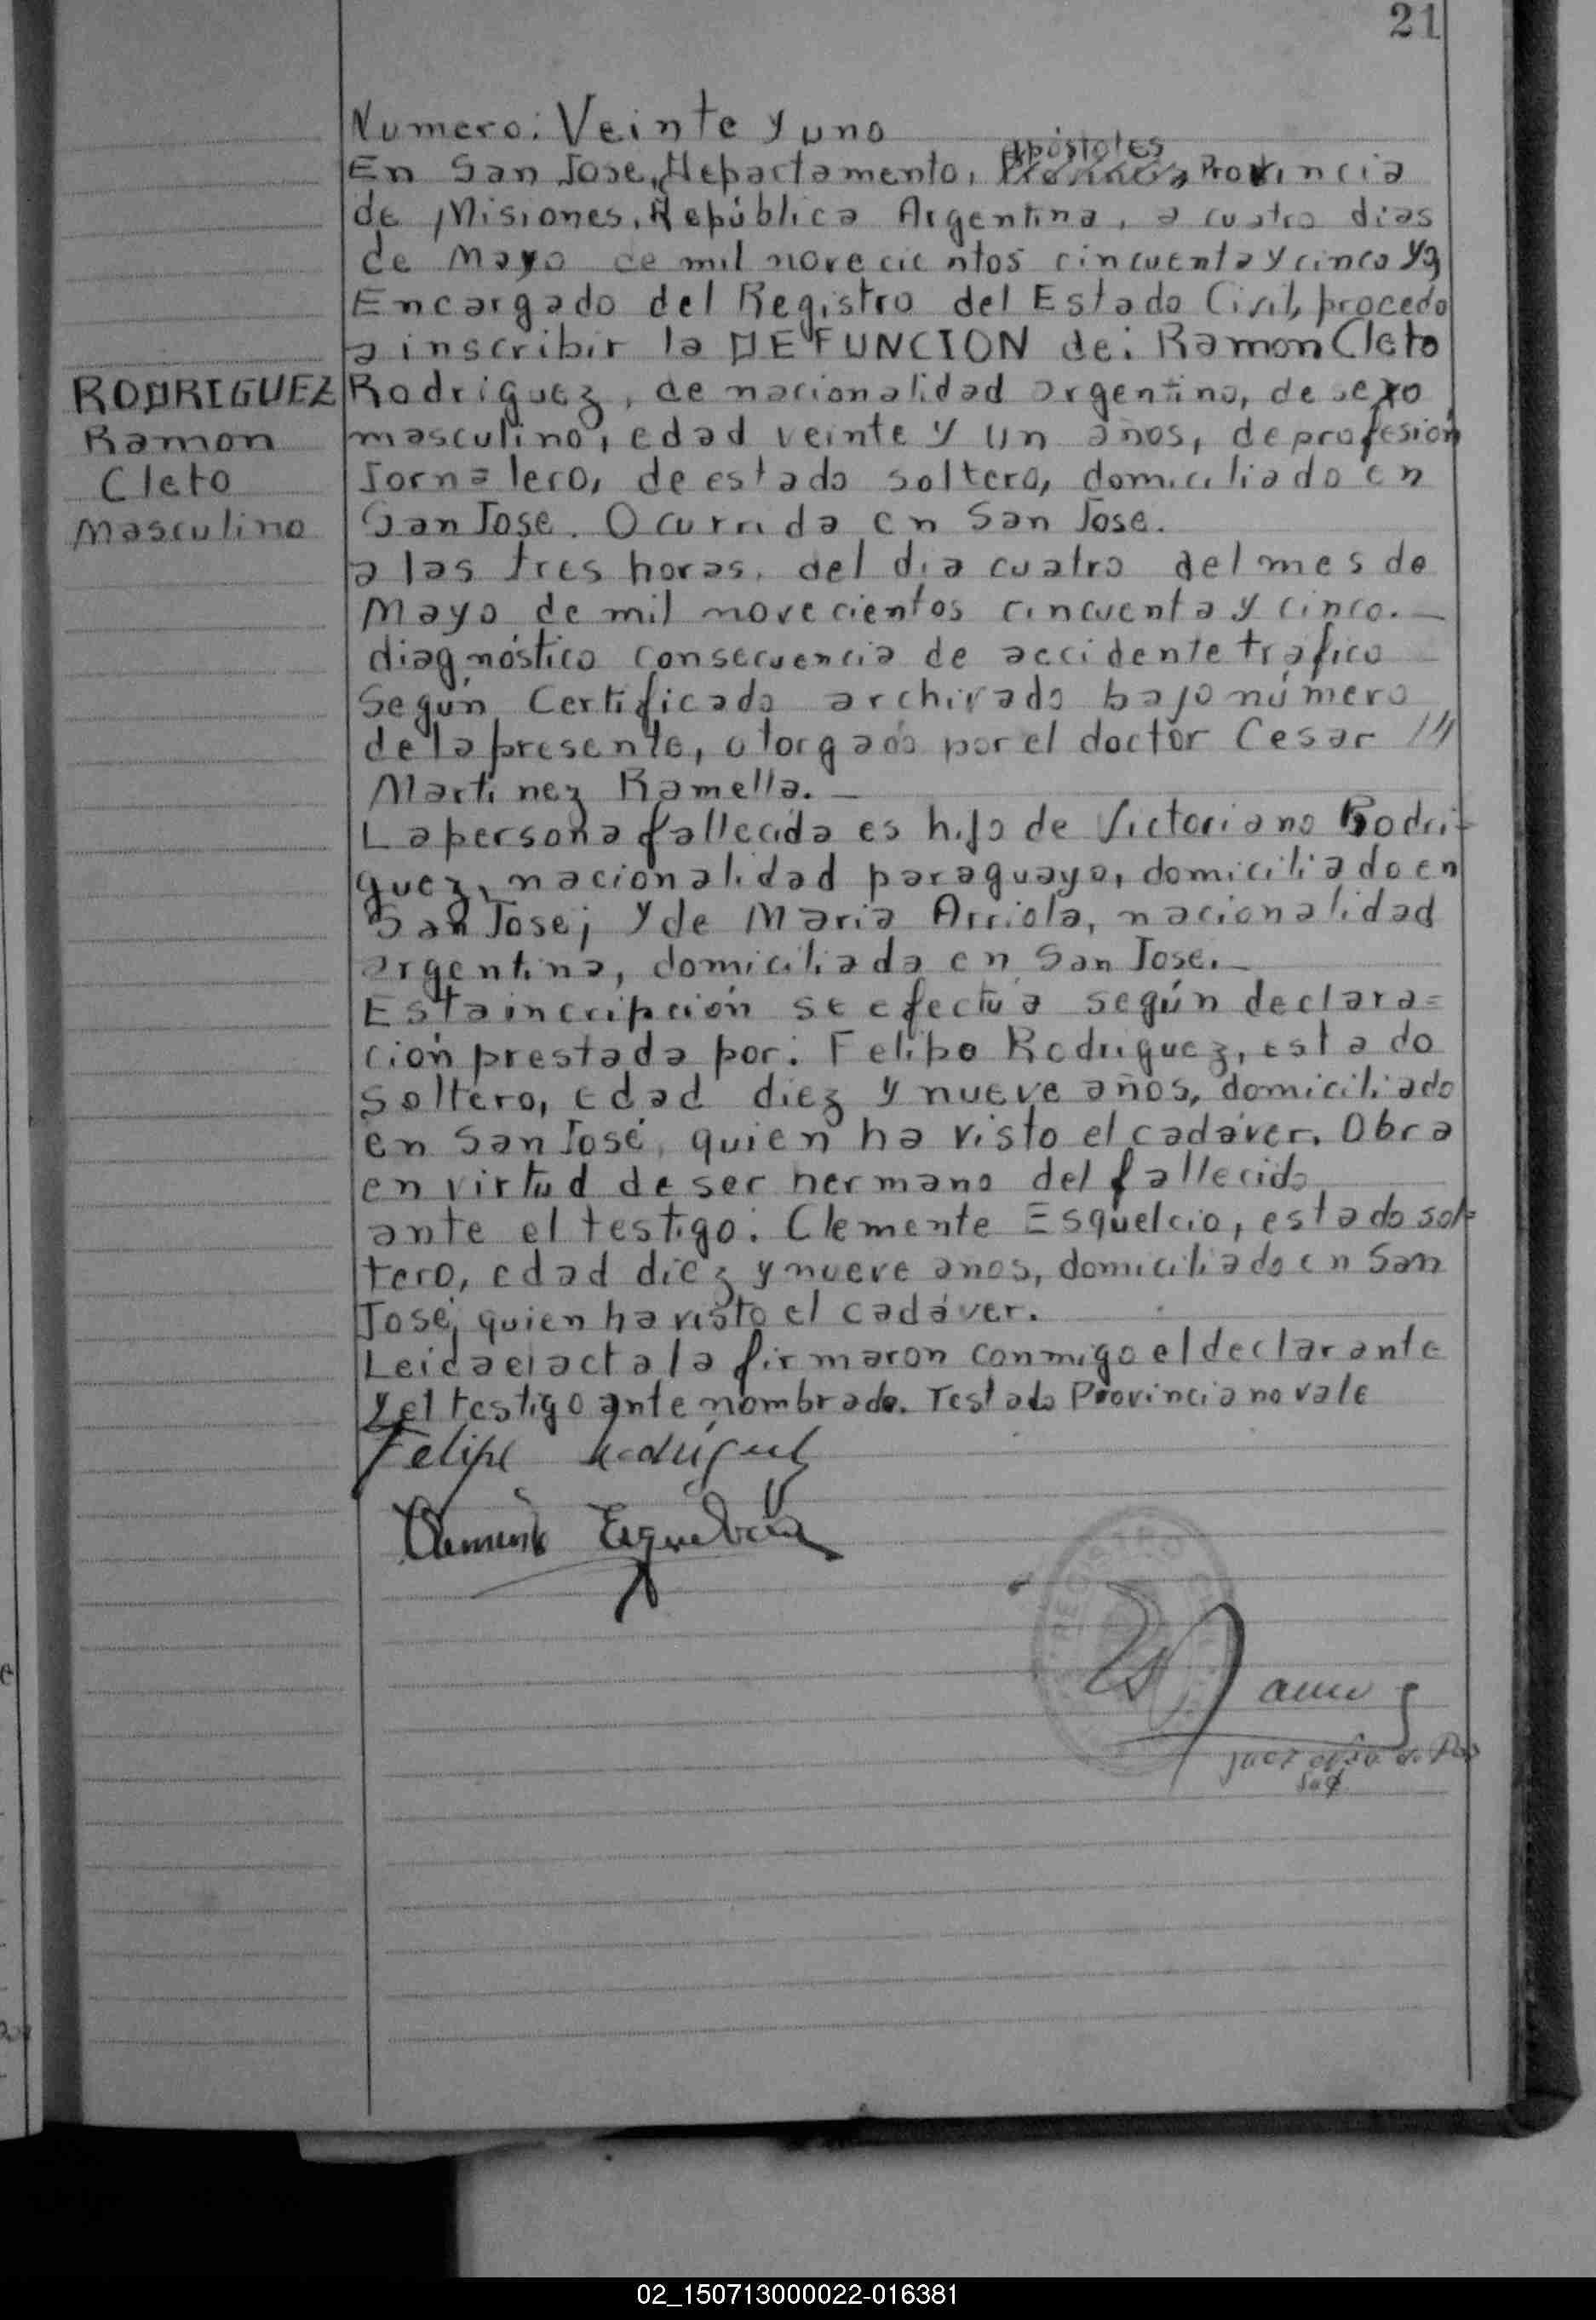 21
Numero: Veinte y uno
En San Jose, Departamento, apóstoles Provincia, Provincia
de Misiones, República Argentina, a cuatro dias
de Mayo de mil novecientos cincuenta y cinco yo
Encargado del Registro del Estado Civil, procedo
a inscribir la DEFUNCION de: Ramon Cleto
RODRIGUEZ
Ramon
Cleto
Masculino
Rodriguez, de nacionalidad argentino, de sexo
masculino, edad veinte y un años, de profesión
Jornalero, de estado soltero, domiciliado en
San Jose. Ocurrida en San Jose.
a las tres horas, del dia cuatro del mes de
Mayo de mil novecientos cincuenta y cinco.—
diagnóstico consecuencia de accidente trafico
Según Certificado archivado bajo número
de la presente, otorgado por el doctor Cesar
Martinez Ramella.—
La persona fallecida es hijo de Victoriano Rodri-
guez, nacionalidad paraguayo, domiciliado en
San Jose; y de Maria Arriola, nacionalidad
argentina, domiciliada en San Jose.—
Esta incripción se efectúa según declara=
ción prestada por: Felipe Rodriguez, estado
soltero, edad diez y nueve años, domiciliado
en San José, quien ha visto el cadáver. Obra
en virtud de ser hermano del fallecido
ante el testigo: Clemente Esquelcio, estado sol=
tero, edad diez y nueve anos, domiciliado en San
José, quien ha visto el cadáver.
Leida el acta la firmaron conmigo el declarante
y el testigo ante nombrado. Testado Provincia no vale
Felipe Rodriguez
Clemente
REGISTRO
Juez de Paz
02_150713000022-016381